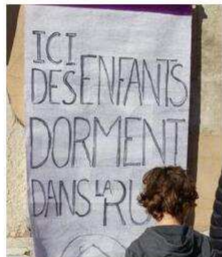 ICI
DES ENFANTS
DORMENT
DANS LA RU